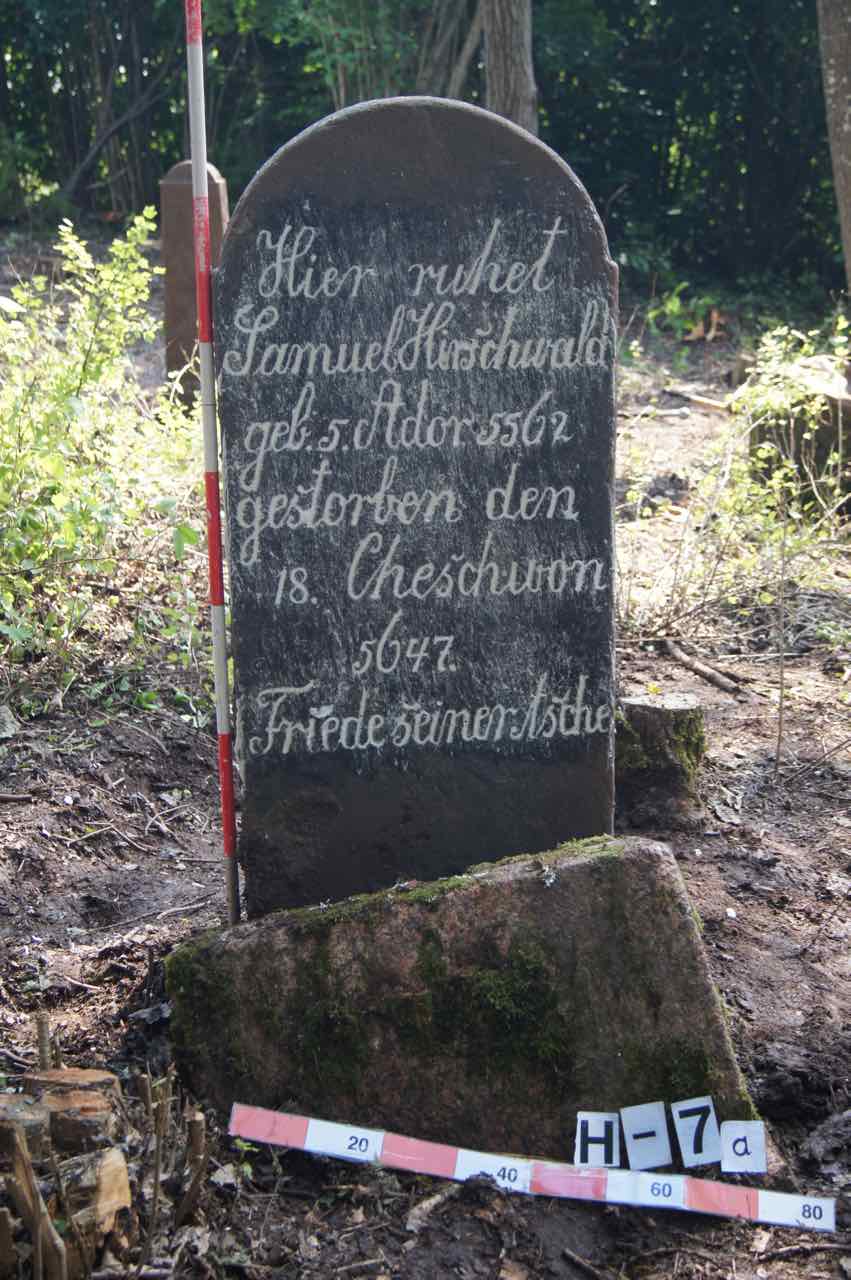 Hier ruhet
Samuel Hirschwald
geb. 5. Ador 5562
gestorben den
18. Cheschwon
5647.
Friede seiner Asche
H-7a
20
40
60
80